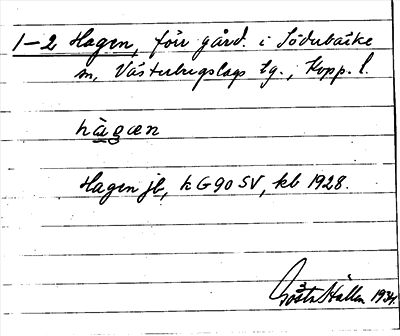 1–2 Hagen, förr gård. i Söderbärke
sn, Västerbergslags tg., Kopp. l.
hàgæn
Hagen jb, k G90 SV, kb 1928.
Gösta Hallén 1934.